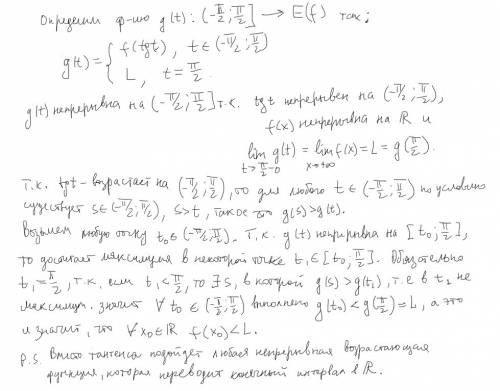 Определим ф-ию g(t): (-π/2; π/2] → E(f) так:
g(t) = { f(tgt), t∈(-π/2; π/2)
L, t = π/2.
g(t) непрерывна на (-π/2; π/2] т.к. tgt непрерывен на (-π/2; π/2),
f(x) непрерывна на ℝ и
lim g(t) = lim f(x) = L = g(π/2).
t→π/2-0 x→+∞
Т.к. tgt - возрастает на (-π/2; π/2), то для любого t∈(-π/2; π/2) по условию
существует s∈(-π/2; π/2), s>t, такое что g(s)>g(t).
Возьмем любую точку t₀∈(-π/2; π/2). Т.к. g(t) непрерывна на [t₀; π/2],
то достигает максимума в некоторой точке t₁∈[t₀; π/2]. Обязательно
t₁=π/2, т.к. если t₁<π/2, то ∃s, в которой g(s)>g(t₁), т.е в t₁ не
максимум. Значит ∀t₀∈(-π/2; π/2) выполнено g(t₀)<g(π/2)=L, а это
и значит, что ∀x₀∈ℝ f(x₀)<L.
P.S. Вместо тангенса подойдет любая непрерывная возрастающая
функция, которая переводит конечный интервал в ℝ.